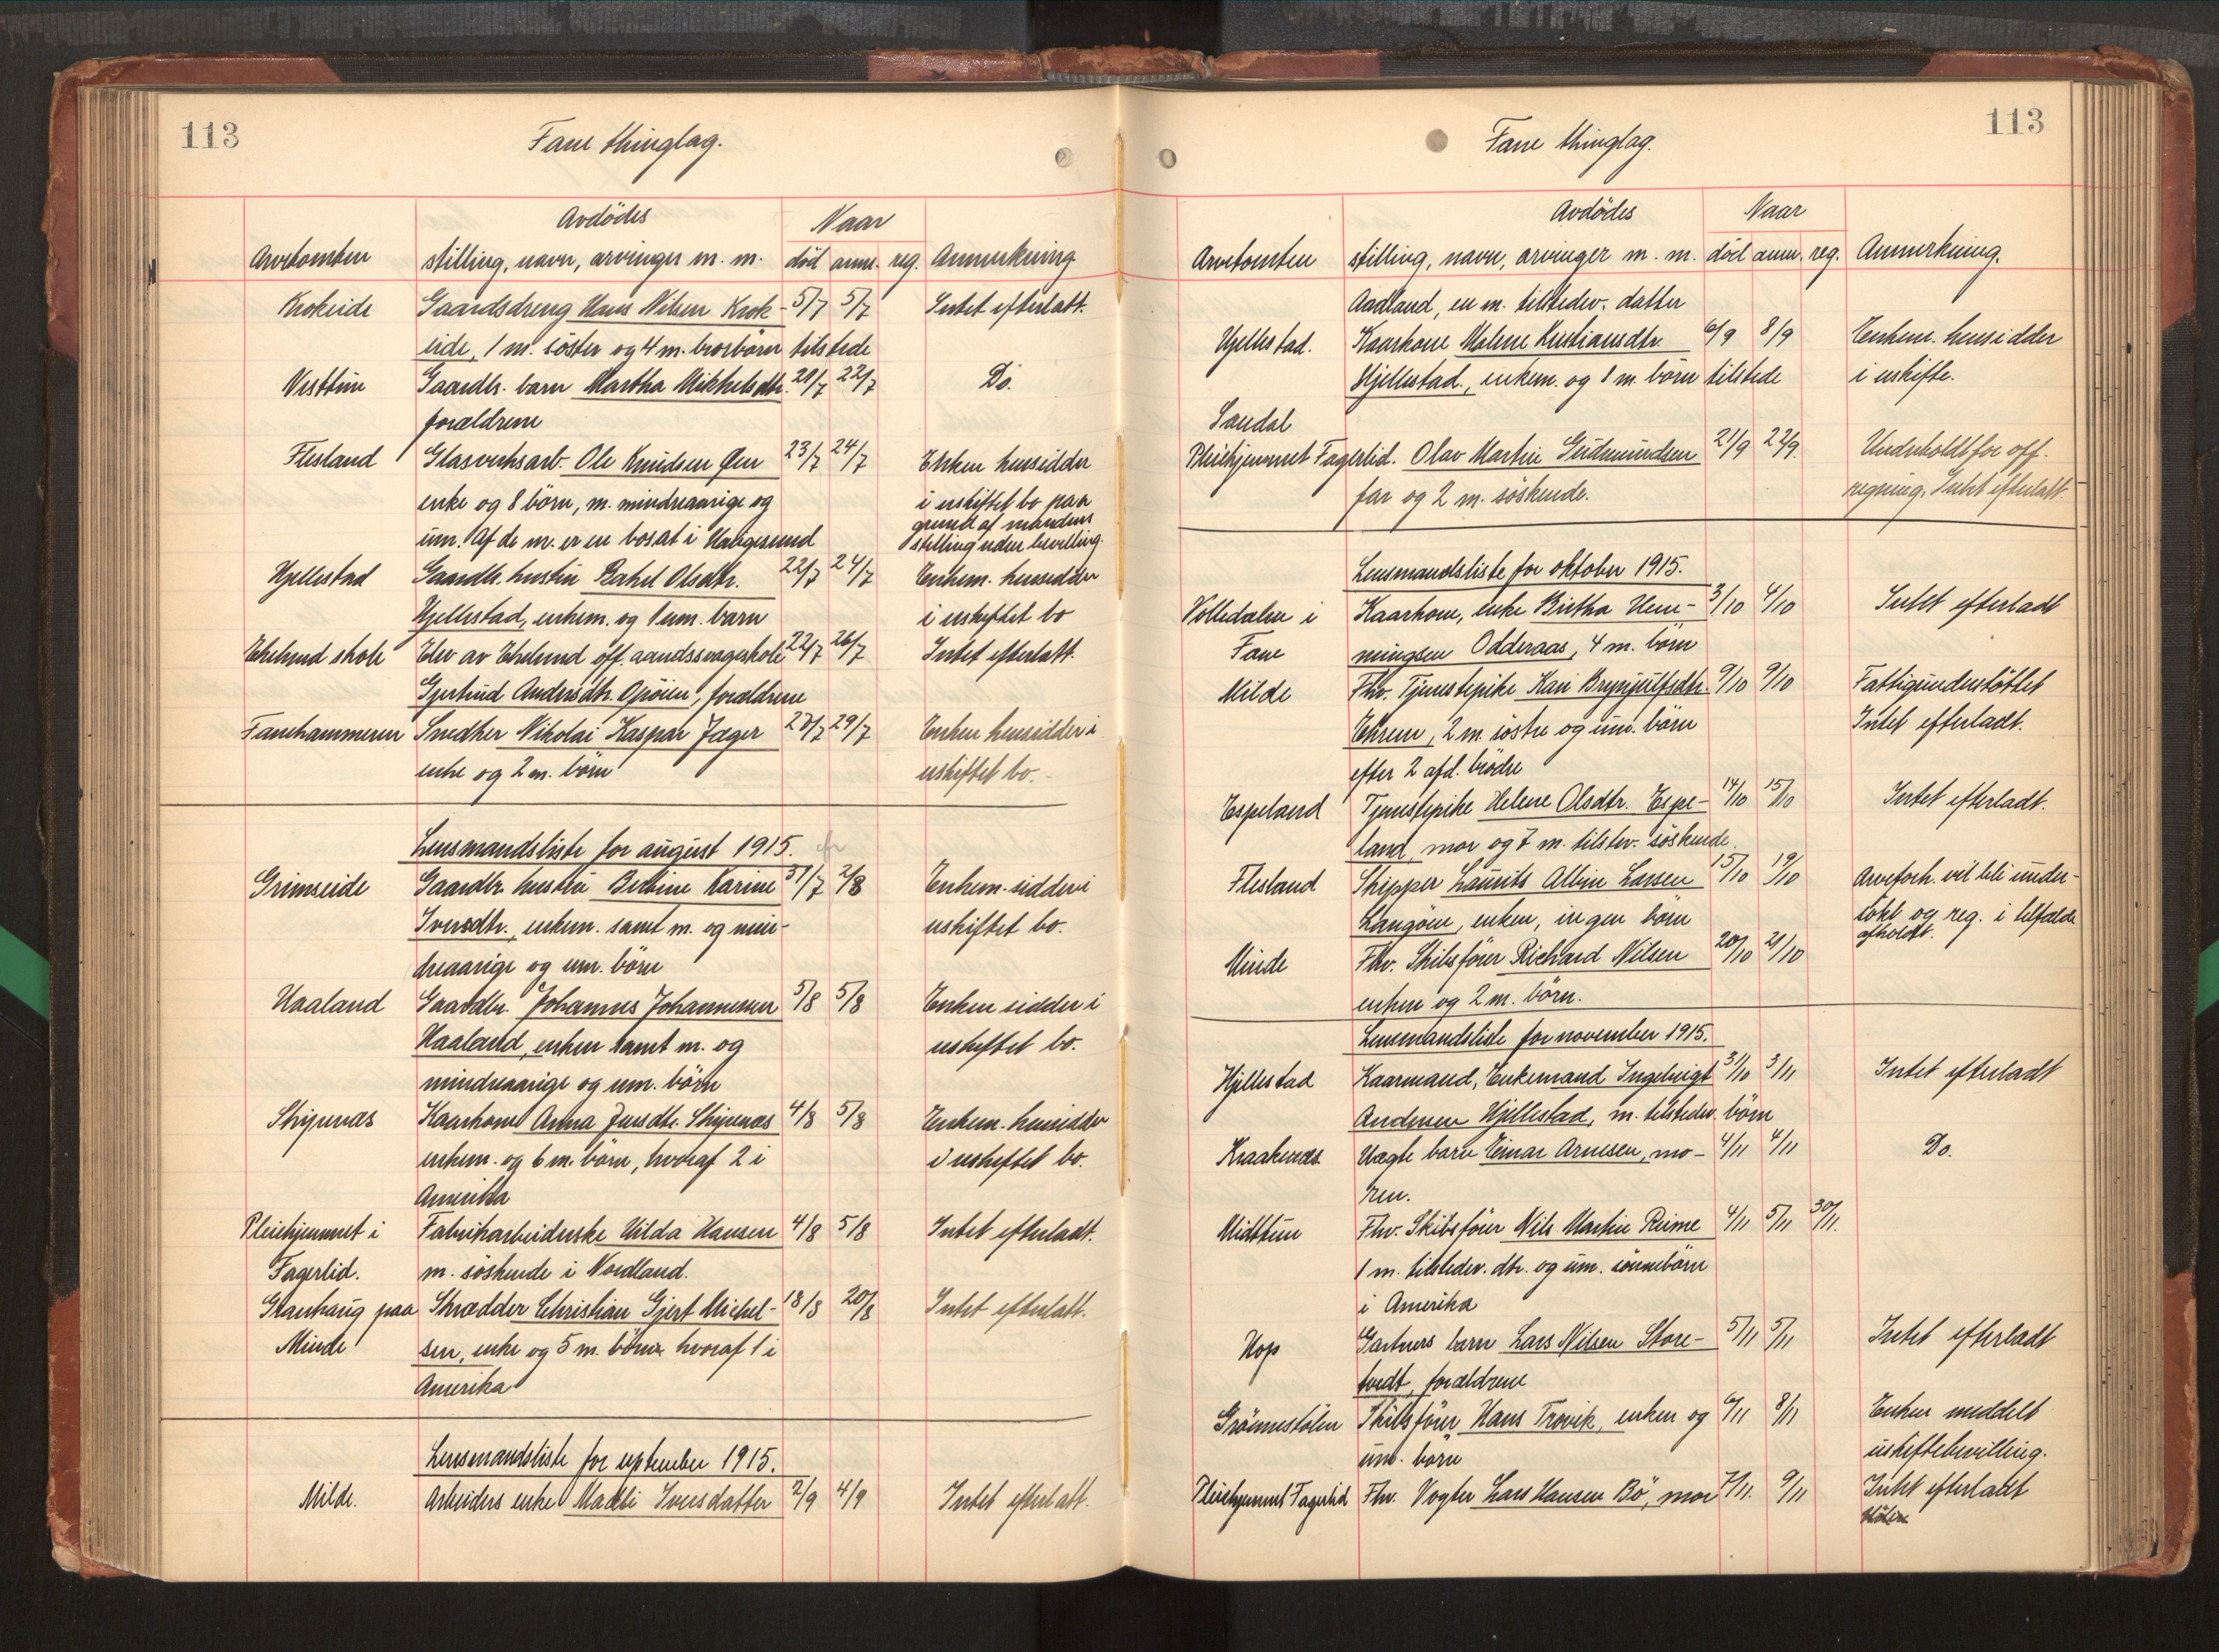 113
Fane thinglag.
Avdödes
Naar
Arvetomten stilling, navn, arvinger m. m. död anm. reg. Anmerkning
Krokeide Gaardsdreng Hans Nilsen Krok- 5/7 5/7 Intet efterlatt.
eide, 1 m. söster og 4 m. brorbörn tilstede
Vesttun Gaardbr. barn Martha Mikkelsdtr. 21/7 22/7 Do.
forældrene
Flesland Glasverksarb. Ole Knudsen Øen 23/7 24/7 Enken hensidder
enke og 8 börn, m. mindreaarige og i uskiftet bo paa
um. Af de m. er en bosat i Haugesund grund af mandens
stilling uden bevilling.
Hjellestad Gaardbr. hustru Rakel Olsdtr. 22/7 24/7 Enkem. hensidder
Hjellestad, enkem. og 1 um. barn i uskiftet bo
Ekelund skole Elev av Ekelund off. aandssvageskole 22/7 26/7 Intet efterlatt.
Gjertrud Andersdtr. Opöien, forældrene
Fanehammeren Snedker Nikolai Kaspar Jæger 27/7 29/7 Enken hensidder i
enke og 2 m. börn uskiftet bo.
Lensmandsliste for august 1915.
Grimseide Gaardbr. hustru Berbine Karine 31/7 2/8 Enkem. sidder i
Iversdtr., enkem. samt m. og min- uskiftet bo.
dreaarige og um. börn
Haaland Gaardbr. Johannes Johannessen 5/8 5/8 Enken sidder i
Haaland, enken samt m. og uskiftet bo.
mindreaarige og um. börn
Skipenæs Kaarkone Anna Jensdtr. Skipenæs 4/8 5/8 Enkem. hensidder
enkem. og 6 m. börn, hvoraf 2 i i uskiftet bo.
Amerika
Pleiehjemmet i Fabrikarbeiderske Hilda Hansen 4/8 5/8 Intet efterladt.
Fagerlid. m. söskende i Nordland.
Granhaug paa Skrædder Christian Gjert Michel- 18/8 20/8 Intet efterlatt.
Minde sen, enke og 5 m. börn hvoraf 1 i
Amerika
Lensmandsliste for september 1915.
Milde. Arbeiders enke Madli Iversdatter 2/9 4/9 Intet efterlatt.
113
Fane thinglag.
Avdödes
Naar
Arvetomten stilling, navn, arvinger m. m. död anm. reg. Anmerkning.
Aadland, en m. tilstedev. datter
Hjellestad. Kaarkone Malene Kristiansdtr. 6/9 8/9 Enkem. hensidder
Hjellestad., enkem. og 1 m. börn tilstede i uskifte.
Sandal
Pleiehjemmet Fagerlid. Olav Martin Gudmundsen 21/9 22/9. Underholdt for off.
far og 2 m. söskende. regning. Intet efterlatt
Lensmandsliste for oktober 1915.
Volledalen i Kaarkone, enke Birtha Hem- 3/10 4/10 Intet efterladt
Fane mingsen Odderaas, 4 m. börn
Milde Fhv. Tjenestepike Kari Brynjulfsdtr. 9/10 9/10 Fattigunderstöttet
Ekrem, 2 m. söstre og um. börn Intet efterladt.
efter 2 afd. brödre
Espeland Tjenestepike Helene Olsdtr. Espe- 14/10 15/10 Intet efterladt.
land, mor og 7 m. tilstev. söskende.
Flesland Skipper Laurits Albin Larsen 15/10 19/10 Arveforh. vil bli under-
Langöen, enken, ingen börn sökt og reg. i tilfælde
afholdt.
Minde Fhv. Skibsförer Richard Nilsen 20/10 21/10
enken og 2 m. börn.
Lensmandsliste for november 1915.
Hjellestad Kaarmand, Enkemand Ingebrigt 31/10 3/11 Intet efterladt
Andersen Hjellestad, m. tilstedev. börn
Kraakenæs. Uægte barn Einar Arnesen, mo- 4/11 4/11 Do.
ren.
Midttun Fhv. Skibsförer Nils Martin Reime 4/11 5/11 30/11.
1 m. tilstedev. dtr. og um. sönnebörn
i Amerika
Hop Gartners barn Lars Nilsen Store- 5/11 5/11 Intet efterladt
tvedt, forældrene
Grönnestölen Skibsförer Hans Trovik, enken og 6/11 8/11 Enken meddelt
um. börn uskiftebevilling.
Pleiehjemmet Fagerlid Fhv. Vogter Lars Hansen Bö, mor 7/11. 9/11 Intet efterladt